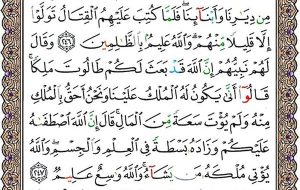 مِن دِيَٰرِنَا وَأَبْنَآئِنَا ۖ فَلَمَّا كُتِبَ عَلَيْهِمُ ٱلْقِتَالُ تَوَلَّوْا۟
إِلَّا قَلِيلًا مِّنْهُمْ ۗ وَٱللَّهُ عَلِيمٌۢ بِٱلظَّٰلِمِينَ ٢٤٦ وَقَالَ
لَهُمْ نَبِيُّهُمْ إِنَّ ٱللَّهَ قَدْ بَعَثَ لَكُمْ طَالُوتَ مَلِكًا ۚ
قَالُوٓا۟ أَنَّىٰ يَكُونُ لَهُ ٱلْمُلْكُ عَلَيْنَا وَنَحْنُ أَحَقُّ بِٱلْمُلْكِ
مِنْهُ وَلَمْ يُؤْتَ سَعَةً مِّنَ ٱلْمَالِ ۚ قَالَ إِنَّ ٱللَّهَ ٱصْطَفَىٰهُ
عَلَيْكُمْ وَزَادَهُۥ بَسْطَةً فِى ٱلْعِلْمِ وَٱلْجِسْمِ ۖ وَٱللَّهُ
يُؤْتِى مُلْكَهُۥ مَن يَشَآءُ ۚ وَٱللَّهُ وَٰسِعٌ عَلِيمٌ ٢٤٧